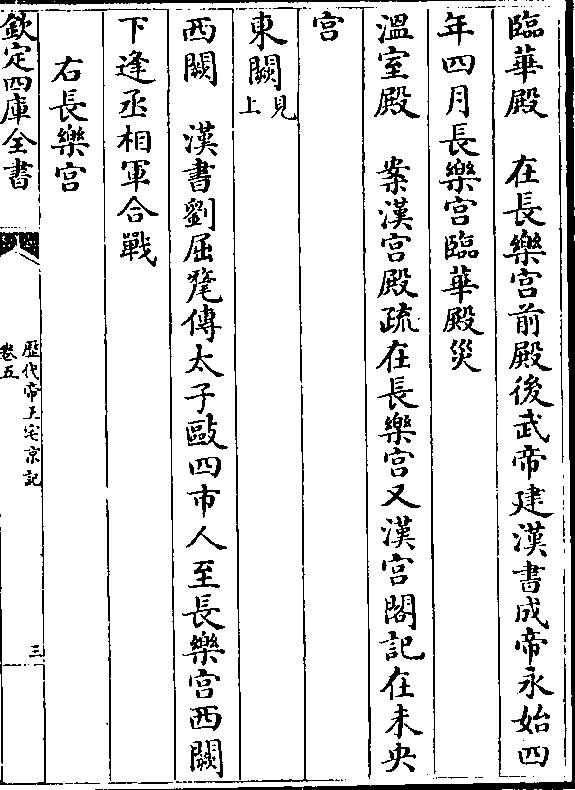 臨華殿　在長樂宫前殿後武帝建漢書成帝永始四
年四月長樂宫臨華殿災
溫室殿　案漢宫殿疏在長樂宫又漢宫閣記在未央
宫
東闕見上
西闕　漢書劉屈氂傳太子敺四市人至長樂宫西闕
下逢丞相軍合戰
右長樂宫
欽定四庫全書
歴代帝王宅京記
卷五
三